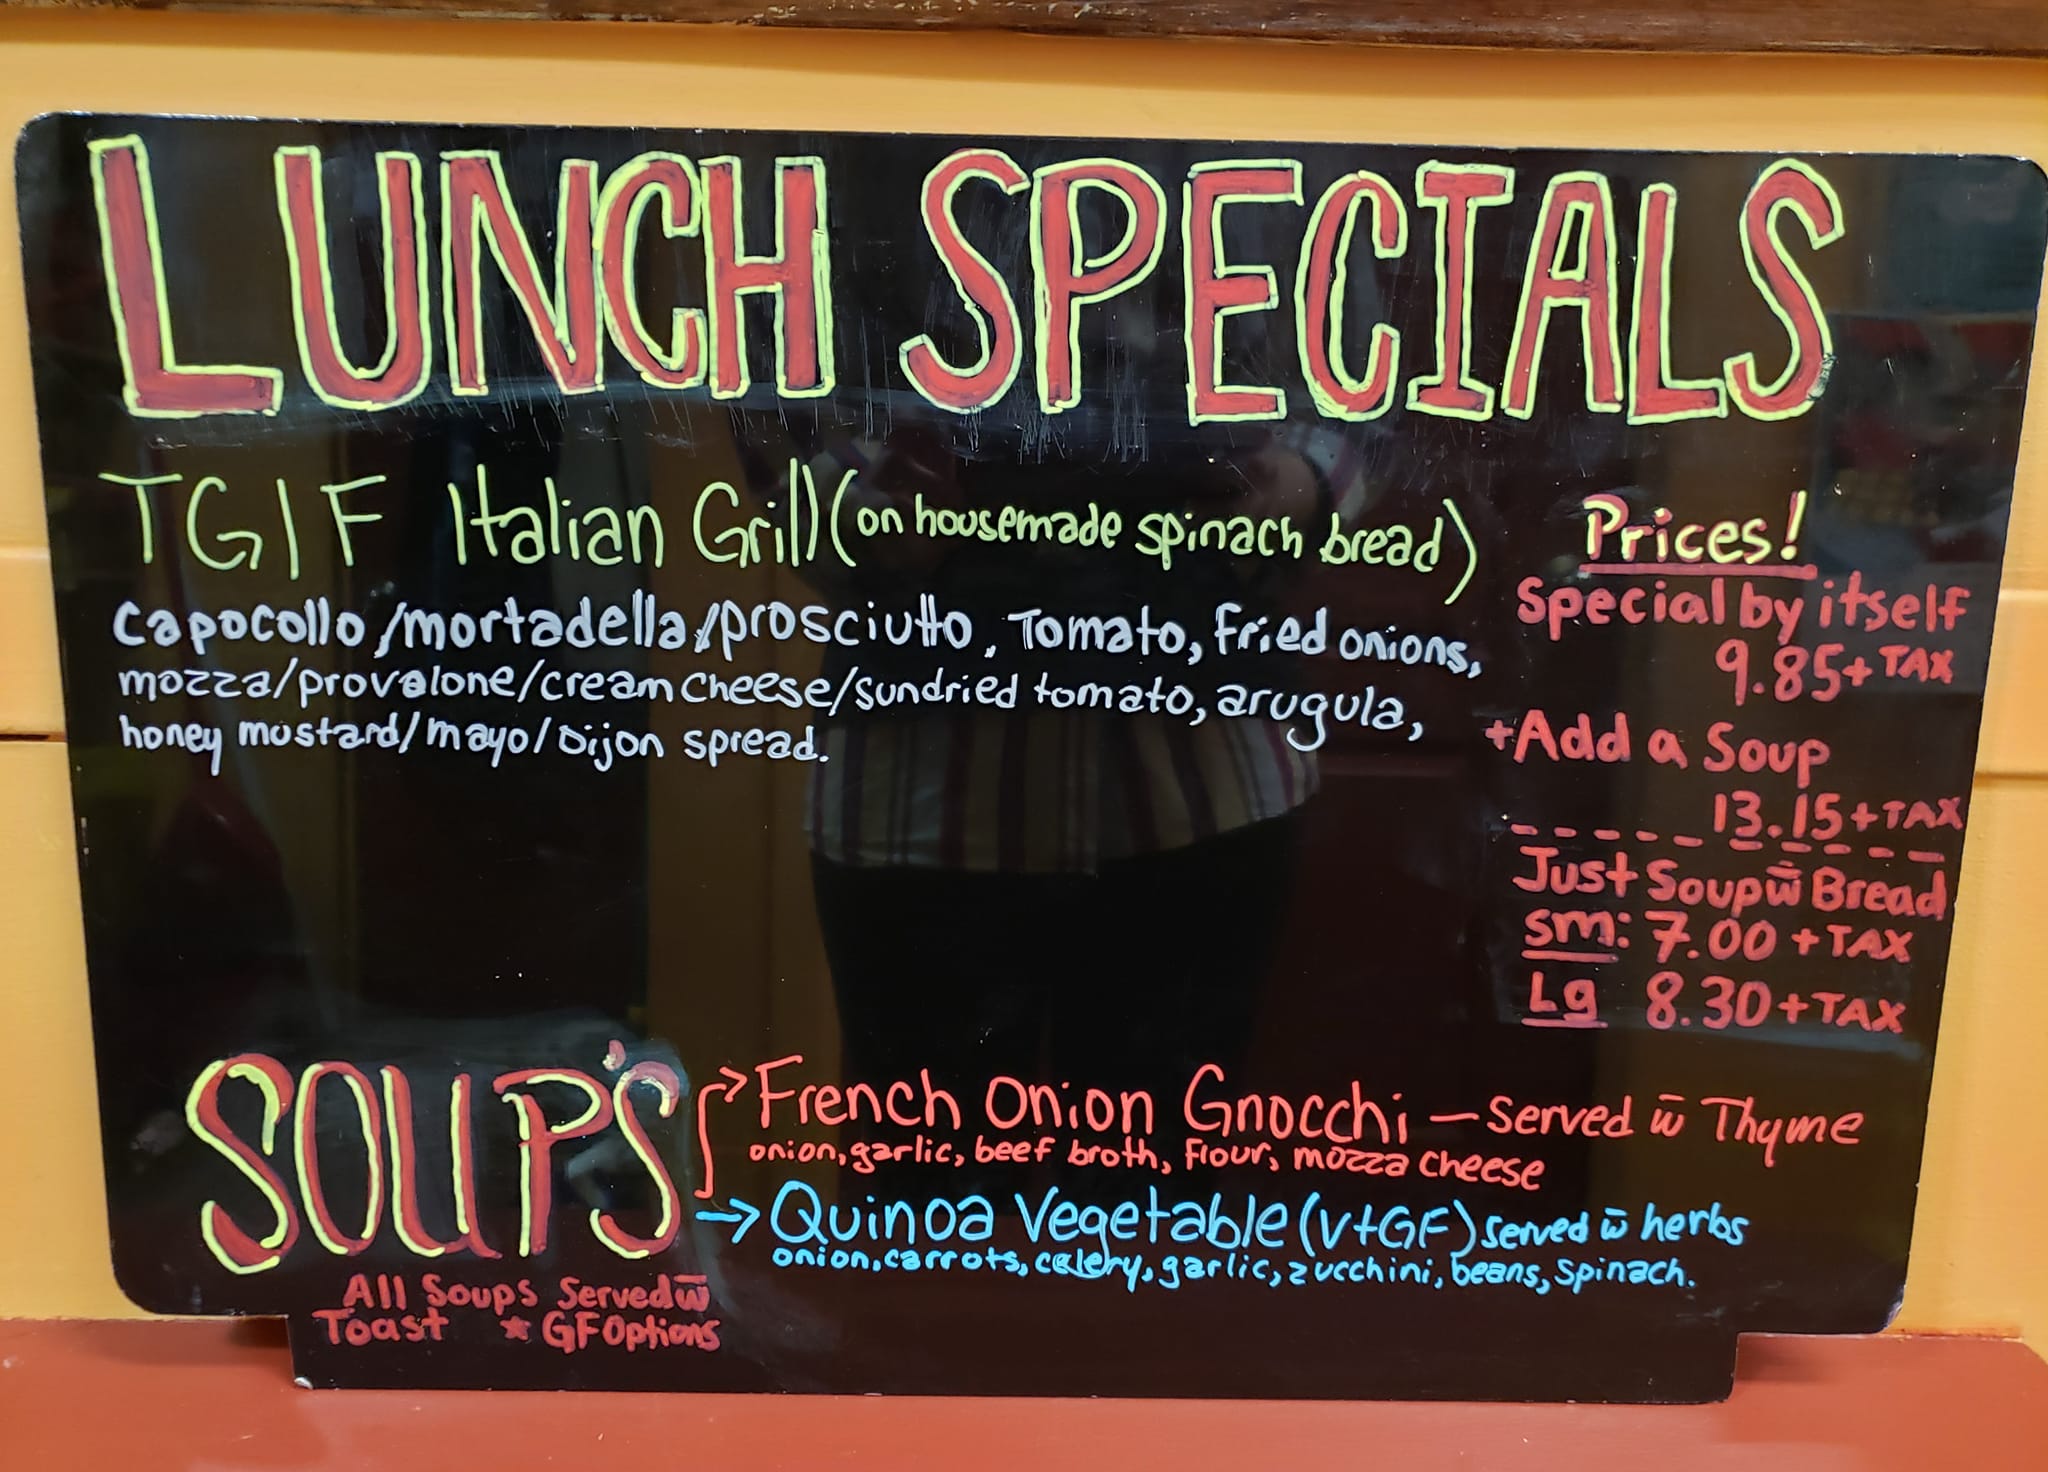 LUNCH SPECIALS
TGIF Italian Grill (on housemade spinach bread)
capocollo/mortadella/prosciutto, Tomato, Fried onions,
mozza/provolone/cream cheese/sundried tomato, arugula,
honey mustard/mayo/Dijon spread.
Prices!
Special by itself
9.85+TAX
+Add a Soup
13.15+TAX
Just Soup w̄ Bread
sm: 7.00 +TAX
Lg 8.30+TAX
SOUP'S
All Soups Served w̄
Toast * GF Options
French Onion Gnocchi - Served w̄ Thyme
onion, garlic, beef broth, flour, mozza cheese
Quinoa Vegetable (V+GF) served w̄ herbs
onion, carrots, celery, garlic, zucchini, beans, spinach.